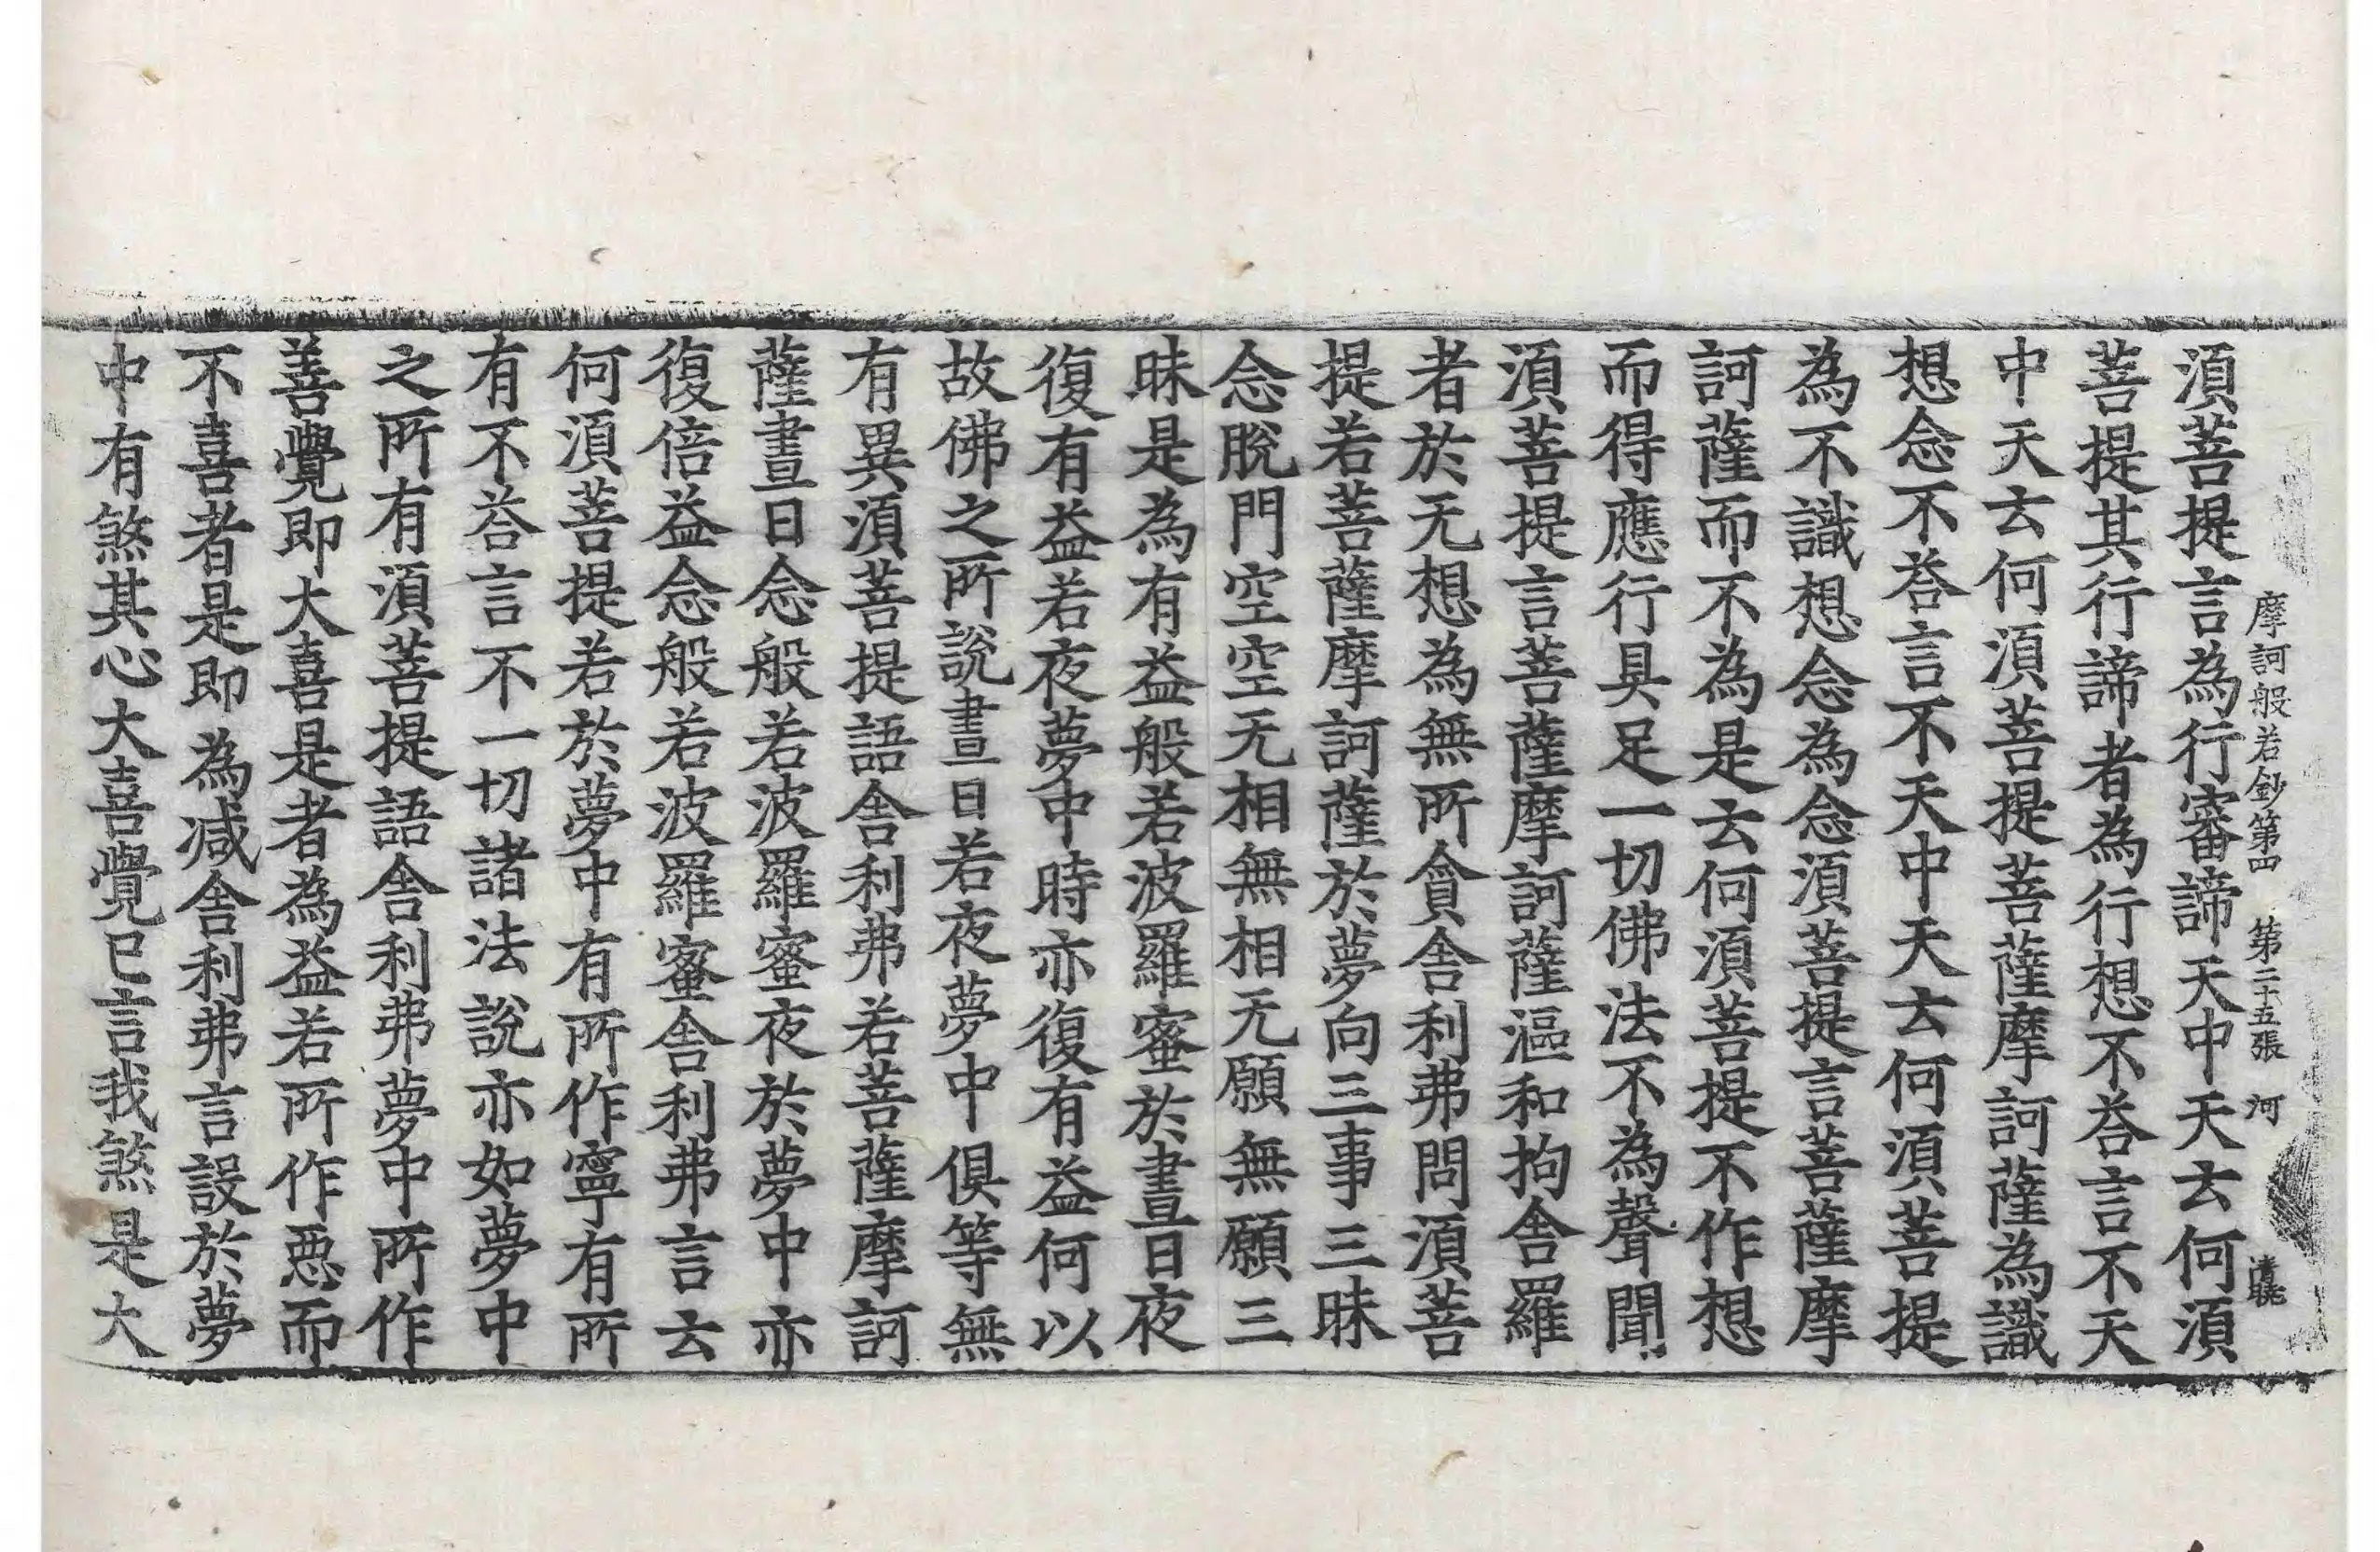 摩訶般若鈔第四　第二十五張　河　清聰
須菩提言為行審諦天中天云何須
菩提其行諦者為行想不荅言不天
中天云何須菩提菩薩摩訶薩為識
想念不荅言不天中天云何須菩提
為不識想念為念須菩提言菩薩摩
訶薩而不為是云何須菩提不作想
而得應行具足一切佛法不為聲聞
須菩提言菩薩摩訶薩漚和拘舍羅
者於无想為無所貪舍利弗問須菩
提若菩薩摩訶薩於夢向三事三昧
念脫門空空无相無相无願無願三
昧是為有益般若波羅蜜於晝日夜
復有益若夜夢中時亦復有益何以
故佛之所說晝日若夜夢中俱等無
有異須菩提語舍利弗若菩薩摩訶
薩晝日念般若波羅蜜夜於夢中亦
復倍益念般若波羅蜜舍利弗言云
何須菩提若於夢中有所作寧有所
有不荅言不一切諸法說亦如夢中
之所有須菩提語舍利弗夢中所作
善覺即大喜是者為益若所作惡而
不喜者是即為減舍利弗言設於夢
中有煞其心大喜覺已言我煞是大